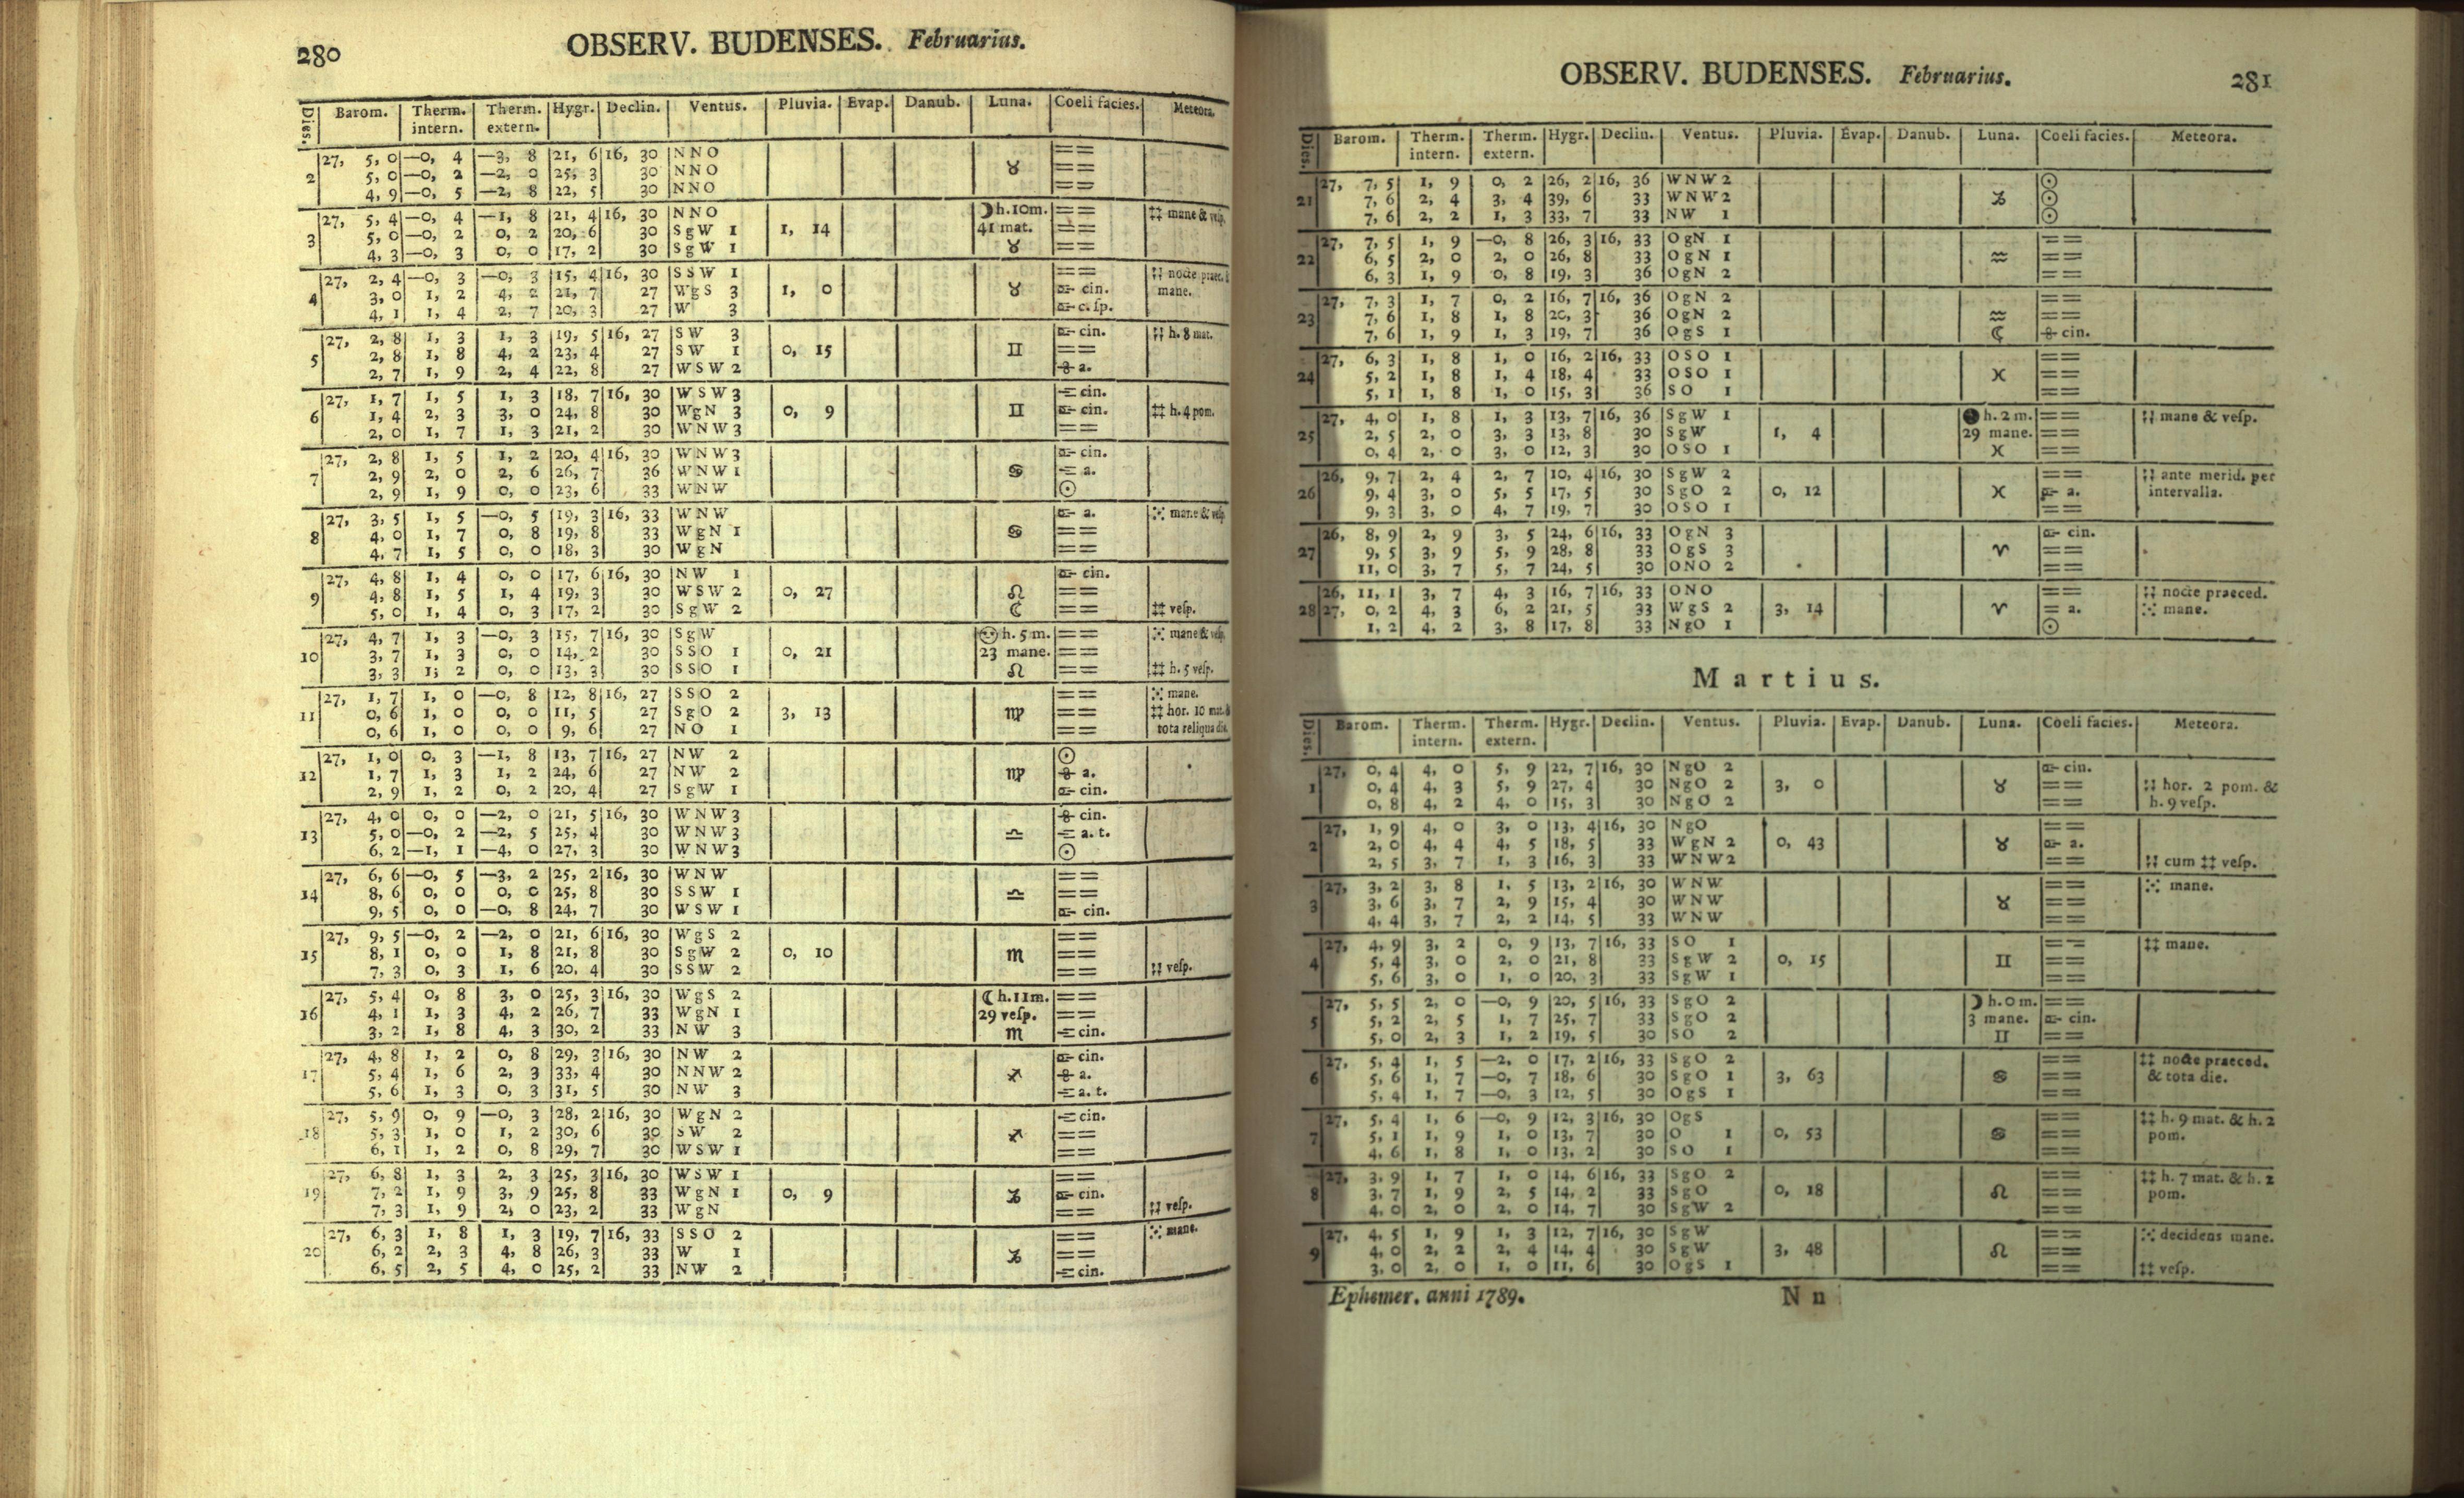 280
OBSERV. BUDENSES. Februarius.
Dies. Barom. Therm. intern. Therm. extern. Hygr. Declin. Ventus. Pluvia. Evap. Danub. Luna. Coeli facies. Meteora.
27, 5, 0 —0, 4 —3, 8 21, 6 16, 30 NNO ==
2 5, 0 —0, 2 —2, 0 25, 3 30 NNO ♉ ==
4, 9 —0, 5 —2, 8 22, 5 30 NNO ==
27, 5, 4 —0, 4 —1, 8 21, 4 16, 30 NNO ☽ h. 10 m. == ‡‡ mane & veſp.
3 5, 0 —0, 2 0, 2 20, 6 30 SgW 1 1, 14 41 mat. ==
4, 3 —0, 3 0, 0 17, 2 30 SgW 1 ♉ ==
27, 2, 4 —0, 3 —0, 3 15, 4 16, 30 SSW 1 == nocte praec. &
4 3, 0 1, 2 4, 2 21, 7 27 WgS 3 1, 0 ♉ cin. mane.
4, 1 1, 4 2, 7 20, 3 27 W 3 c. ſp.
27, 2, 8 1, 3 1, 3 19, 5 16, 27 SW 3 cin. h. 8 mat.
5 2, 8 1, 8 4, 2 23, 4 27 SW 1 0, 15 ♊ ==
2, 7 1, 9 2, 4 22, 8 27 WSW 2 a.
27, 1, 7 1, 5 1, 3 18, 7 16, 30 WSW 3 cin.
6 1, 4 2, 3 3, 0 24, 8 30 WgN 3 0, 9 ♊ cin. ‡‡ h. 4 pom.
2, 0 1, 7 1, 3 21, 2 30 WNW 3 ==
27, 2, 8 1, 5 1, 2 20, 4 16, 30 WNW 3 cin.
7 2, 9 2, 0 2, 6 26, 7 36 WNW 1 ♋ a.
2, 9 1, 9 0, 0 23, 6 33 WNW ☉
27, 3, 5 1, 5 —0, 5 19, 3 16, 33 WNW a. mane & veſp.
8 4, 0 1, 7 0, 8 19, 8 33 WgN 1 ♋ ==
4, 7 1, 5 0, 0 18, 3 30 WgN ==
27, 4, 8 1, 4 0, 0 17, 6 16, 30 NW 1 cin.
9 4, 8 1, 5 1, 4 19, 3 30 WSW 2 0, 27 ♌ ==
5, 0 1, 4 0, 3 17, 2 30 SgW 2 ☾ == ‡‡ veſp.
27, 4, 7 1, 3 —0, 3 15, 7 16, 30 SgW h. 5 m. == mane & veſp.
10 3, 7 1, 3 0, 0 14, 2 30 SSO 1 0, 21 23 mane. ==
3, 3 1; 2 0, 0 13, 3 30 SSO 1 ♌ == ‡‡ h. 5 veſp.
27, 1, 7 1, 0 —0, 8 12, 8 16, 27 SSO 2 == mane.
11 0, 6 1, 0 0, 0 11, 5 27 SgO 2 3, 13 ♍ == ‡‡ hor. 10 mat. &
0, 6 1, 0 0, 0 9, 6 27 NO 1 == tota reliqua die.
27, 1, 0 0, 3 —1, 8 13, 7 16, 27 NW 2 ☉
12 1, 7 1, 3 1, 2 24, 6 27 NW 2 ♍ a.
2, 9 1, 2 0, 2 20, 4 27 SgW 1 cin.
27, 4, 0 0, 0 —2, 0 21, 5 16, 30 WNW 3 cin.
13 5, 0 —0, 2 —2, 5 25, 4 30 WNW 3 ♎ a. t.
6, 2 —1, 1 —4, 0 27, 3 30 WNW 3 ☉
27, 6, 6 —0, 5 —3, 2 25, 2 16, 30 WNW ==
14 8, 6 0, 0 0, 0 25, 8 30 SSW 1 ♎ ==
9, 5 0, 0 —0, 8 24, 7 30 WSW 1 cin.
27, 9, 5 —0, 2 —2, 0 21, 6 16, 30 WgS 2 ==
15 8, 1 0, 0 1, 8 21, 8 30 SgW 2 0, 10 ♏ ==
7, 3 0, 3 1, 6 20, 4 30 SSW 2 == veſp.
27, 5, 4 0, 8 3, 0 25, 3 16, 30 WgS 2 ☾ h. 11 m. ==
16 4, 1 1, 3 4, 2 26, 7 33 WgN 1 29 veſp. ==
3, 2 1, 8 4, 3 30, 2 33 NW 3 ♏ cin.
27, 4, 8 1, 2 0, 8 29, 3 16, 30 NW 2 cin.
17 5, 4 1, 6 2, 3 33, 4 30 NNW 2 ♐ a.
5, 6 1, 3 0, 3 31, 5 30 NW 3 a. t.
27, 5, 9 0, 9 —0, 3 28, 2 16, 30 WgN 2 cin.
18 5, 3 1, 0 1, 2 30, 6 30 SW 2 ♐ ==
6, 1 1, 2 0, 8 29, 7 30 WSW 1 ==
27, 6, 8 1, 3 2, 3 25, 3 16, 30 WSW 1 ==
19 7, 2 1, 9 3, 9 25, 8 33 WgN 1 0, 9 ♑ cin.
7, 3 1, 9 2, 0 23, 2 33 WgN == veſp.
27, 6, 3 1, 8 1, 3 19, 7 16, 33 SSO 2 == mane.
20 6, 2 2, 3 4, 8 26, 3 33 W 1 ♑ ==
6, 5 2, 5 4, 0 25, 2 33 NW 2 cin.
OBSERV. BUDENSES. Februarius. 281
Dies. Barom. Therm. intern. Therm. extern. Hygr. Declin. Ventus. Pluvia. Evap. Danub. Luna. Coeli facies. Meteora.
27, 7, 5 1, 9 0, 2 26, 2 16, 36 WNW 2 ☉
21 7, 6 2, 4 3, 4 39, 6 33 WNW 2 ♑ ☉
7, 6 2, 2 1, 3 33, 7 33 NW 1 ☉
27, 7, 5 1, 9 —0, 8 26, 3 16, 33 OgN 1 ==
22 6, 5 2, 0 2, 0 26, 8 33 OgN 1 ♒ ==
6, 3 1, 9 0, 8 19, 3 36 OgN 2 ==
27, 7, 3 1, 7 0, 2 16, 7 16, 36 OgN 2 ==
23 7, 6 1, 8 1, 8 20, 3 36 OgN 2 ♒ ==
7, 6 1, 9 1, 3 19, 7 36 OgS 1 ☾ cin.
27, 6, 3 1, 8 1, 0 16, 2 16, 33 OSO 1 ==
24 5, 2 1, 8 1, 4 18, 4 33 OSO 1 ♓ ==
5, 1 1, 8 1, 0 15, 3 36 SO 1 ==
27, 4, 0 1, 8 1, 3 13, 7 16, 36 SgW 1 h. 2 m. == mane & veſp.
25 2, 5 2, 0 3, 3 13, 8 30 SgW 1, 4 29 mane. ==
0, 4 2, 0 3, 0 12, 3 30 OSO 1 ♓ ==
26, 9, 7 2, 4 2, 7 10, 4 16, 30 SgW 2 == ante merid. per
26 9, 4 3, 0 5, 5 17, 5 30 SgO 2 0, 12 ♓ a. intervalla.
9, 3 3, 0 4, 7 19, 7 30 OSO 1 ==
26, 8, 9 2, 9 3, 5 24, 6 16, 33 OgN 3 cin.
27 9, 5 3, 9 5, 9 28, 8 33 OgS 3 ♈ ==
11, 0 3, 7 5, 7 24, 5 30 ONO 2 ==
26, 11, 1 3, 7 4, 3 16, 7 16, 33 ONO == nocte praeced.
28 27, 0, 2 4, 3 6, 2 21, 5 33 WgS 2 3, 14 ♈ = a. mane.
1, 2 4, 2 3, 8 17, 8 33 NgO 1 ☉
Martius.
Dies. Barom. Therm. intern. Therm. extern. Hygr. Declin. Ventus. Pluvia. Evap. Danub. Luna. Coeli facies. Meteora.
27, 0, 4 4, 0 5, 9 22, 7 16, 30 NgO 2 cin.
1 0, 4 4, 3 5, 9 27, 4 30 NgO 2 3, 0 ♉ == hor. 2 pom. &
0, 8 4, 2 4, 0 15, 3 30 NgO 2 == h. 9 veſp.
27, 1, 9 4, 0 3, 0 13, 4 16, 30 NgO ==
2 2, 0 4, 4 4, 5 18, 5 33 WgN 2 0, 43 ♉ a.
2, 5 3, 7 1, 3 16, 3 33 WNW 2 == cum ‡‡ veſp.
27, 3, 2 3, 8 1, 5 13, 2 16, 30 WNW == mane.
3 3, 6 3, 7 2, 9 15, 4 30 WNW ♉ ==
4, 4 3, 7 2, 2 14, 5 33 WNW ==
27, 4, 9 3, 2 0, 9 13, 7 16, 33 SO 1 == ‡‡ mane.
4 5, 4 3, 0 2, 0 21, 8 33 SgW 2 0, 15 ♊ ==
5, 6 3, 0 1, 0 20, 3 33 SgW 1 ==
27, 5, 5 2, 0 —0, 9 20, 5 16, 33 SgO 2 ☽ h. 0 m. ==
5 5, 2 2, 5 1, 7 25, 7 33 SgO 2 3 mane. cin.
5, 0 2, 3 1, 2 19, 5 30 SO 2 ♊ ==
27, 5, 4 1, 5 —2, 0 17, 2 16, 33 SgO 2 == ‡‡ nocte praeced.
6 5, 6 1, 7 —0, 7 18, 6 30 SgO 1 3, 63 ♋ == & tota die.
5, 4 1, 7 —0, 3 12, 5 30 OgS 1 ==
27, 5, 4 1, 6 —0, 9 12, 3 16, 30 OgS == ‡‡ h. 9 mat. & h. 2
7 5, 1 1, 9 1, 0 13, 7 30 O 1 0, 53 ♋ == pom.
4, 6 1, 8 1, 0 13, 2 30 SO 1 ==
27, 3, 9 1, 7 1, 0 14, 6 16, 33 SgO 2 == ‡‡ h. 7 mat. & h. 2
8 3, 7 1, 9 2, 5 14, 2 33 SgO 0, 18 ♌ == pom.
4, 0 2, 0 2, 0 14, 7 30 SgW 2 ==
27, 4, 5 1, 9 1, 3 12, 7 16, 30 SgW == decidens mane.
9 4, 0 2, 2 2, 4 14, 4 30 SgW 3, 48 ♌ ==
3, 0 2, 0 1, 0 11, 6 30 OgS 1 == ‡‡ veſp.
Ephemer. anni 1789. N n